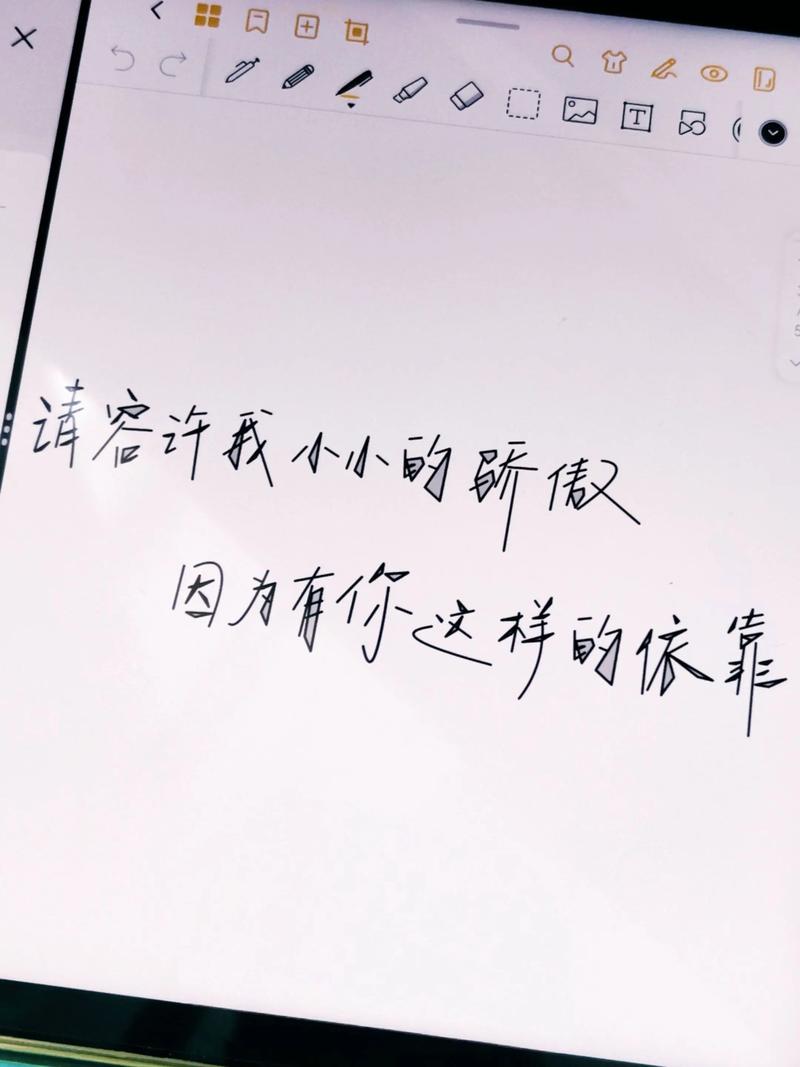 请容许我小小的骄傲
因为有你这样的依靠